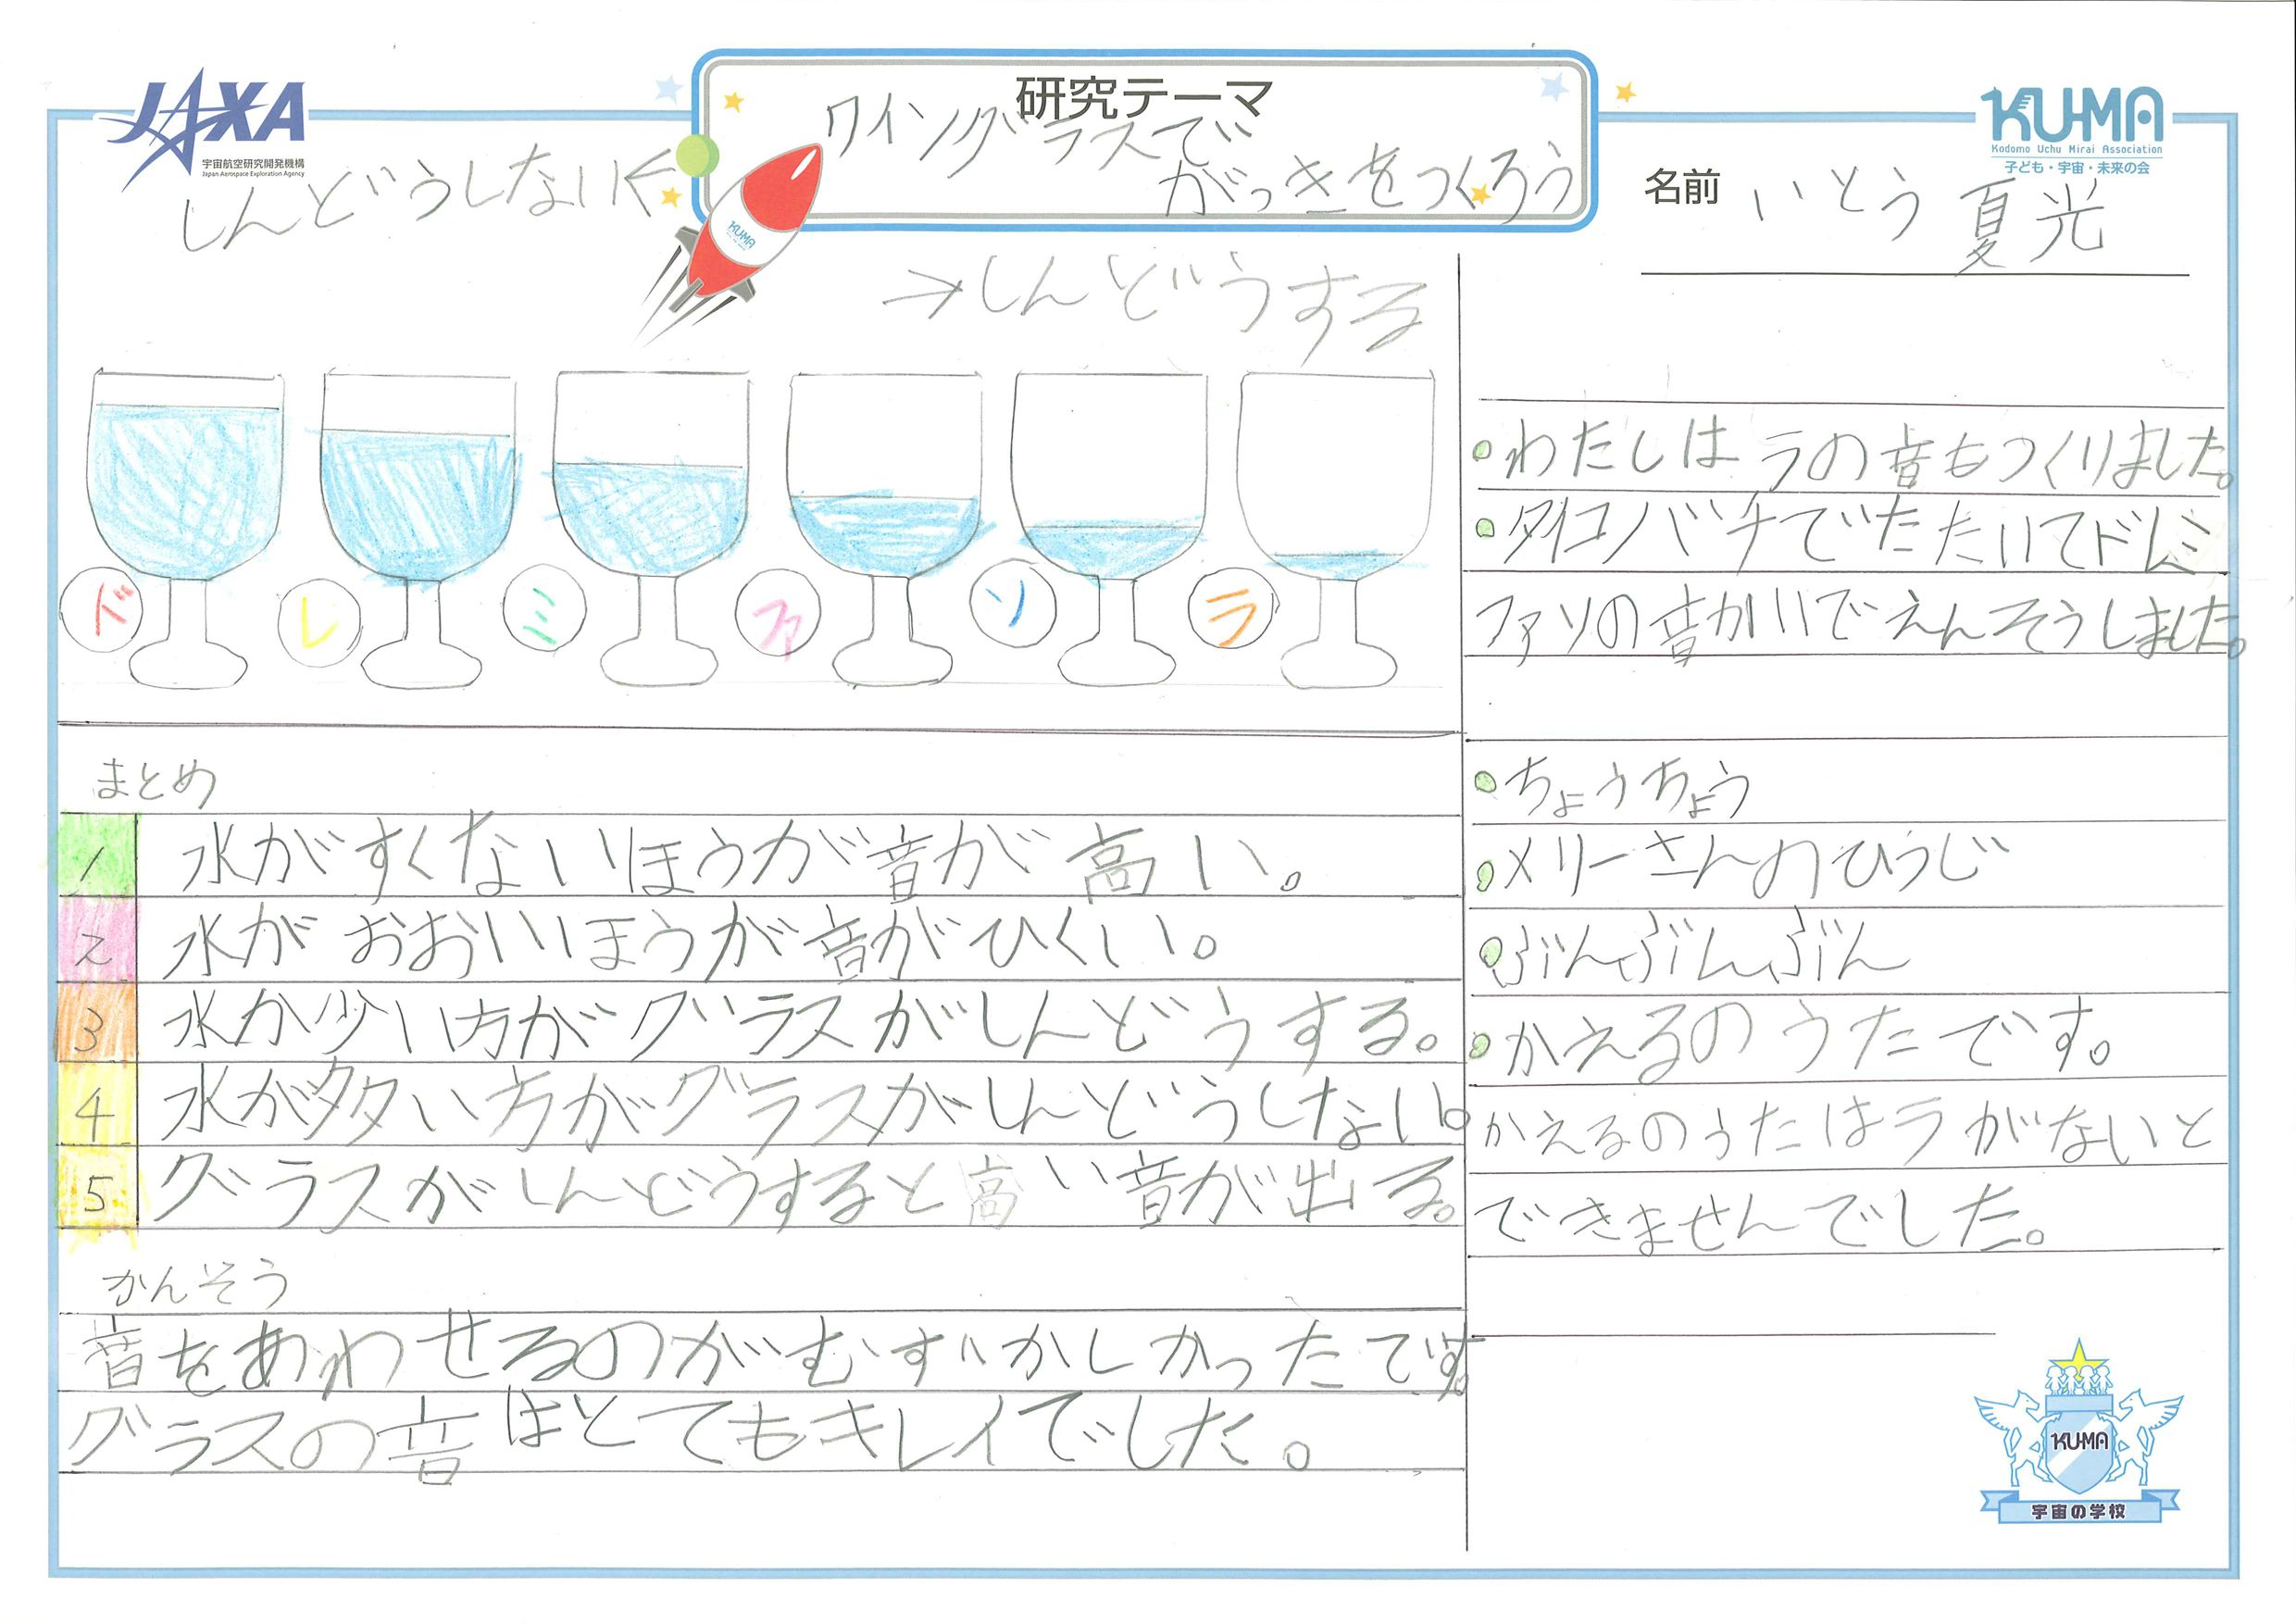 JAXA
宇宙航空研究開発機構
Japan Aerospace Exploration Agency
研究テーマ
ワイングラスで
がっきをつくろう
KUMA
Kodomo Uchu Mirai Association
子ども・宇宙・未来の会
名前 いとう 夏光
しんどうしない←
KUMA
→しんどうする
ド レ ミ ファ ソ ラ
まとめ
1 水がすくないほうが音が高い。
2 水がおおいほうが音がひくい。
3 水が少い方がグラスがしんどうする。
4 水が多い方がグラスがしんどうしない。
5 グラスがしんどうすると高い音が出る。
かんそう
音をあわせるのがむずかしかったです。
グラスの音はとてもキレイでした。
●わたしはラの音もつくりました。
●タイコノバチでたたいてドレミ
ファソの音かいでえんそうしました。
●ちょうちょう
●メリーさんのひつじ
●ぶんぶんぶん
●かえるのうたです。
かえるのうたはラがないと
できませんでした。
KUMA
宇宙の学校